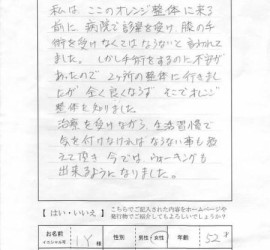 私は、ここのオレンジ整体に来る
前に、病院で診察を受け、膝の手
術を受けなくてはならないと言われて
ました。しかし手術をするのに不安が
あったので、2ヶ所の整体に行きました
が全く良くならず そこでオレンジ
整体を知りました。
治療を受けながら、生活習慣で
気を付けなければならない事も教
えて頂き 今では、ウォーキングも
出来るようになりました。
【はい・いいえ】 こちらでご記入された内容をホームページや
発行物でご紹介してもよろしいでしょうか?
お名前 I Y 様 性別 男性・女性 年齢 52才
イニシャル可